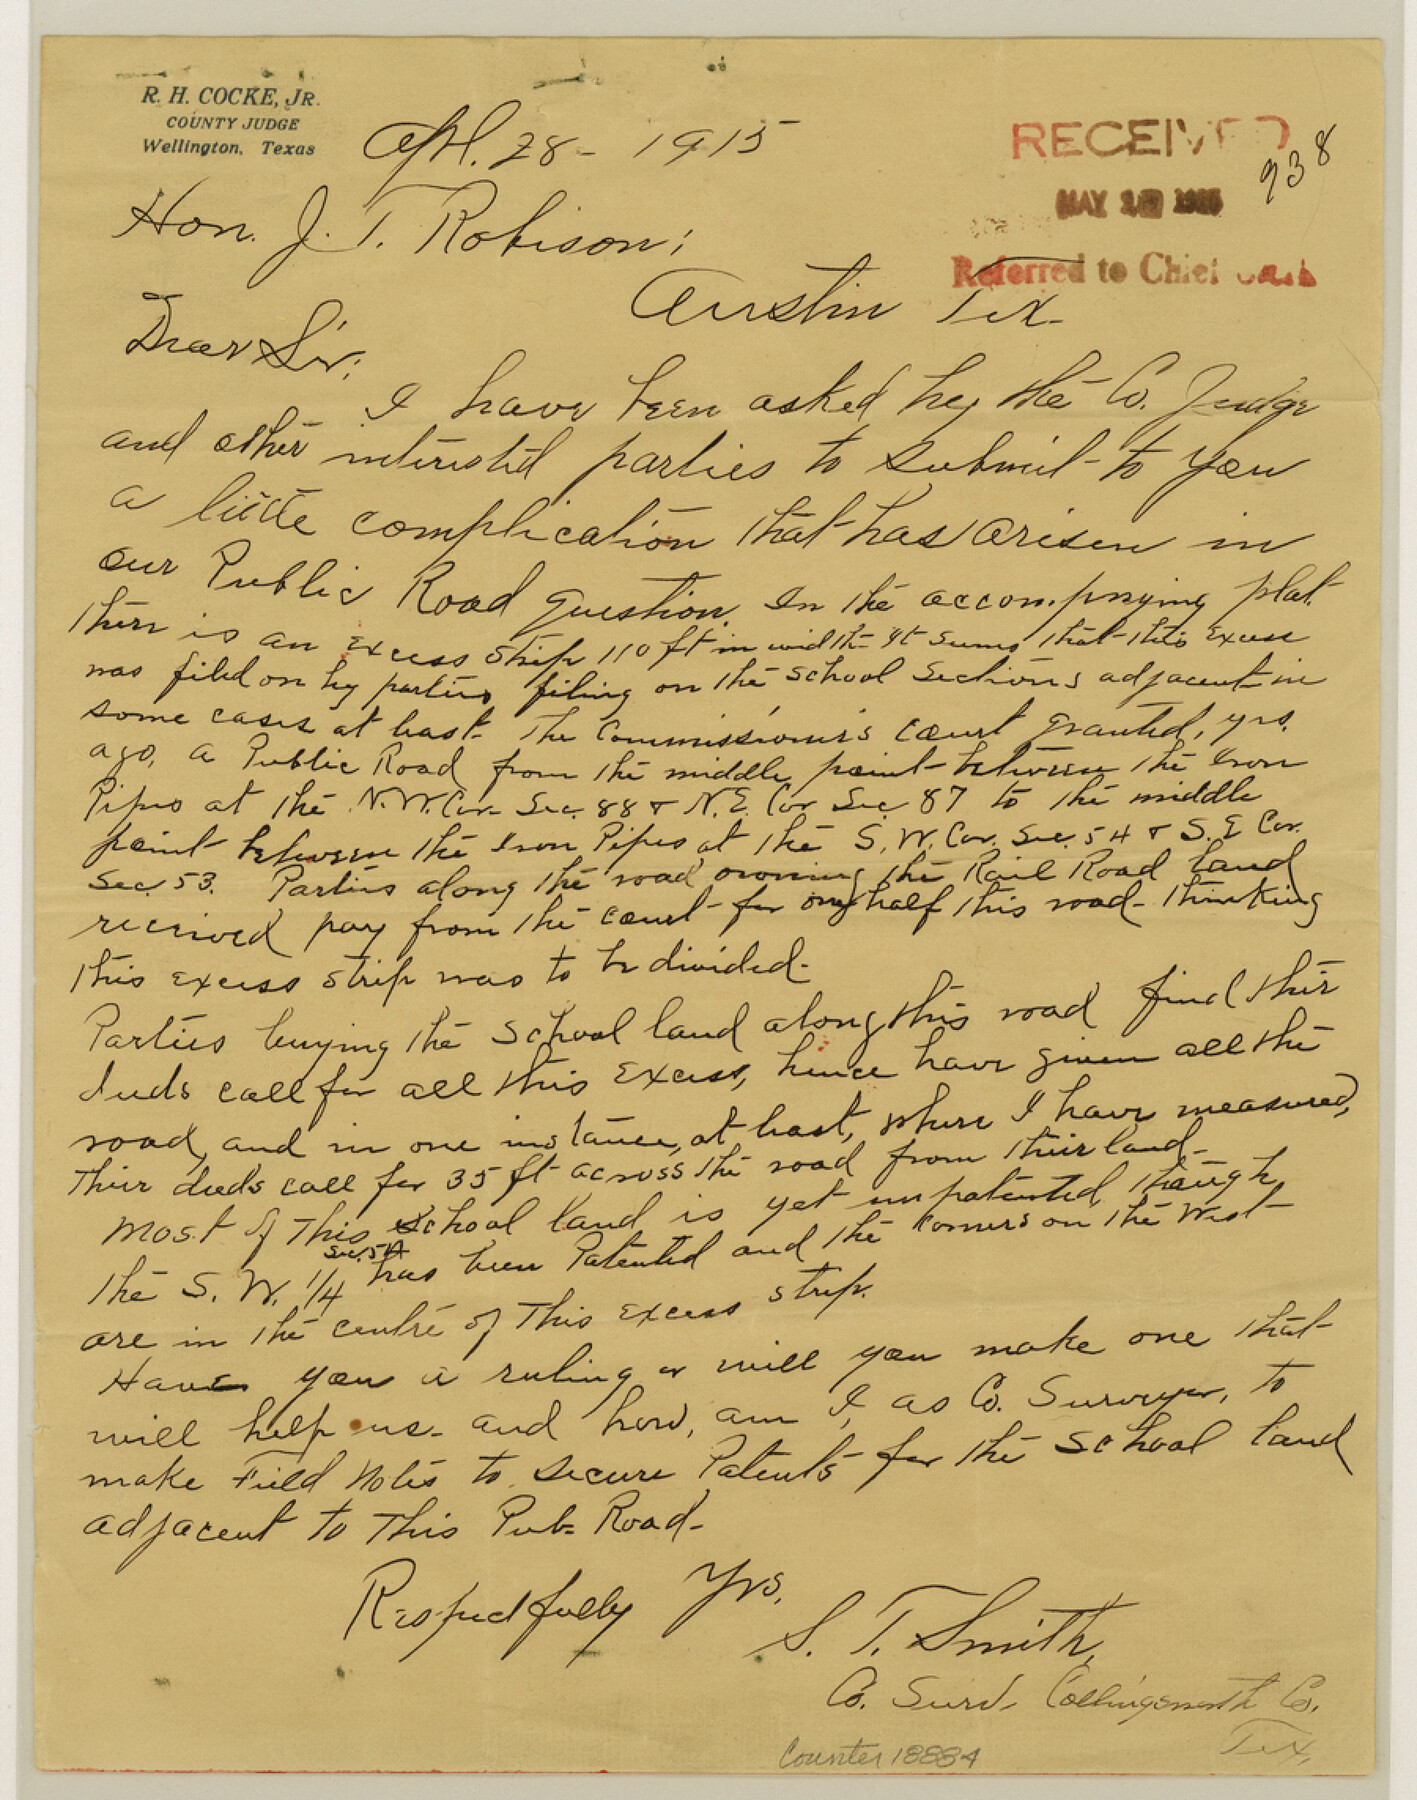 R. H. COCKE, JR.
COUNTY JUDGE
Wellington, Texas
Apl. 28 - 1915
RECEIVED
938
MAY 1915
Referred to Chief Clerk
Hon. J. T. Robison;
Austin Tex-
Dear Sir;
I have been asked by the Co. Judge
and other interested parties to submit to you
a little complication that has arisen in
our Public Road question. In the accompnying plat.
there is an excess strip 110 ft in width - It seems that this excess
was filed on by parties filing on the School Sections adjacent in
some cases at least. The Commissioners court granted, yrs.
ago, a Public Road from the middle point between the Iron
Pipes at the N.W. Cor. Sec. 88 & N.E. Cor Sec 87 to the middle
point between the Iron Pipes at the S. W. Cor. Sec. 54 & S. E Cor.
Sec. 53. Parties along the road owning the Rail Road land
received pay from the court for only half this road - thinking
this excess strip was to be divided -
Parties buying the School land along this road find their
deeds call for all this Excess, hence have given all the
road, and in one instance, at least, where I have measured,
Their deeds call for 35 ft across the road from their land -
Most of this School land is yet unpatented though
the S. W. 1/4 Sec. 54 has been Patented and the corners on the West
are in the centre of This Excess strip.
Have you a ruling or will you make one that
will help us - and how, am I, as Co. Surveyor, to
make Field Notes to secure Patents for the School land
adjacent to This Pub. Road -
Respectfully Yrs.
S. T. Smith,
Co. Surv. Collingsworth Co.
Tex,
Counter 18884